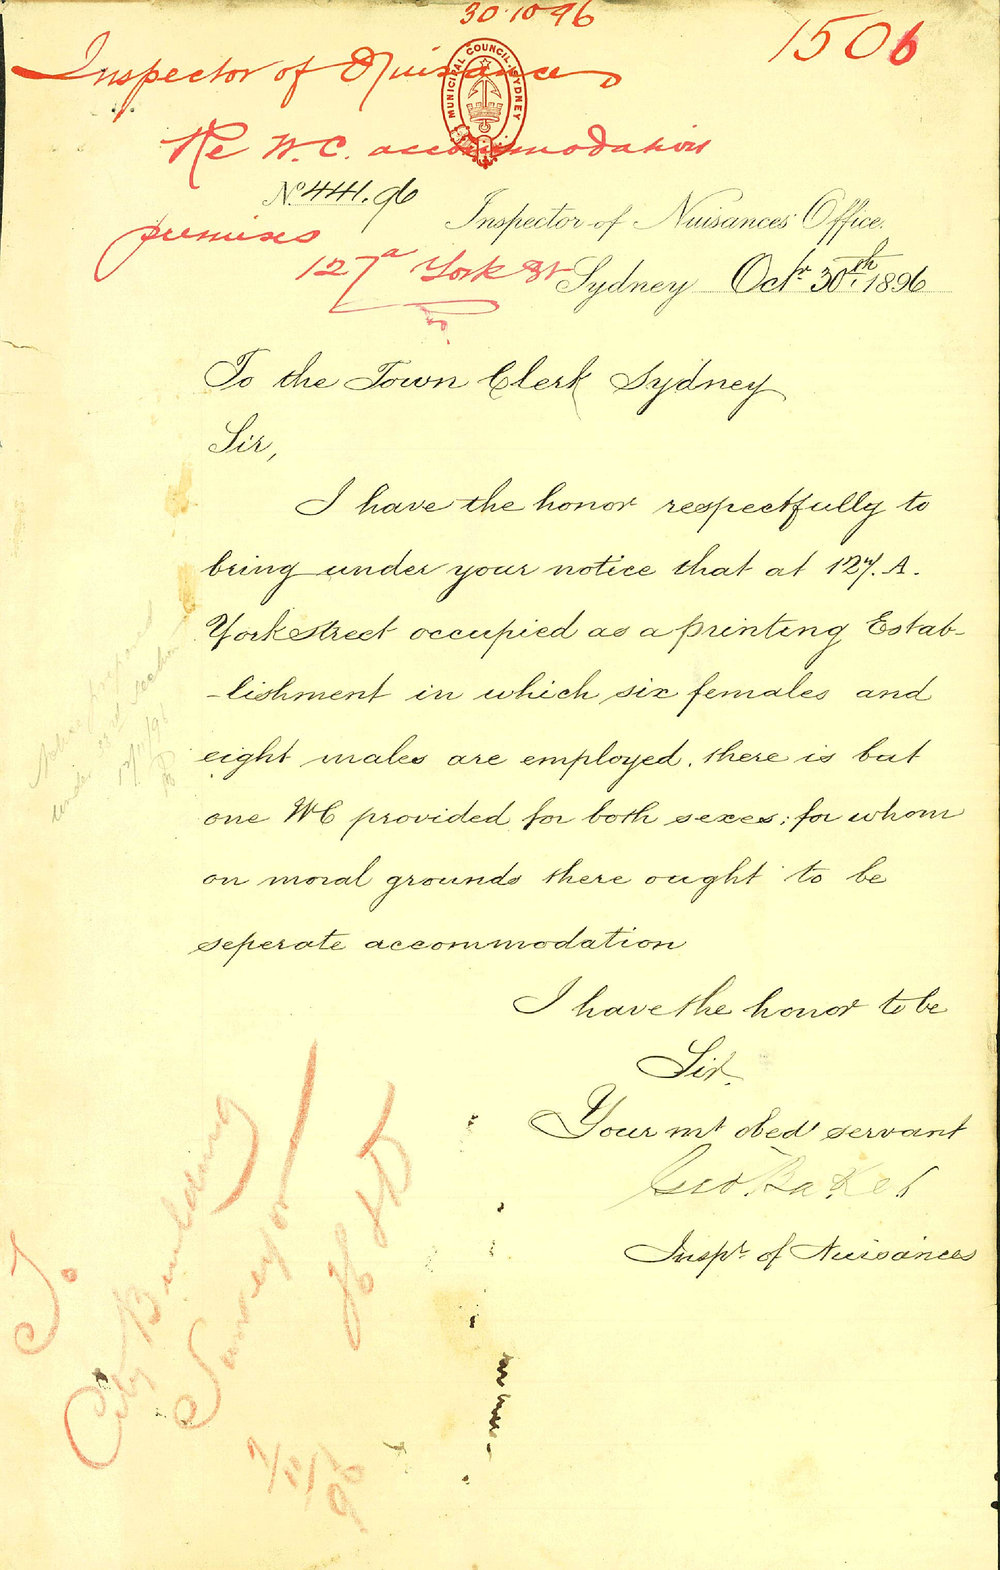 30.10.96
1506
Inspector of Nuisances
MUNICIPAL COUNCIL SYDNEY
Re W.C. accommodation
No. 441.96
Inspector of Nuisances' Office.
premises
127a York St
Sydney Octr. 30th. 1896
To the Town Clerk Sydney
Sir,
I have the honor respectfully to
bring under your notice that at 127. A.
York street occupied as a printing Estab-
-lishment in which six females and
eight males are employed. there is but
one WC provided for both sexes; for whom
on moral grounds there ought to be
seperate accommodation
I have the honor to be
Sir.
Your mt obedt servant
Geo. Baker
Inspr. of Nuisances
Notice prepared
under 33rd section
To
City Building
Surveyor